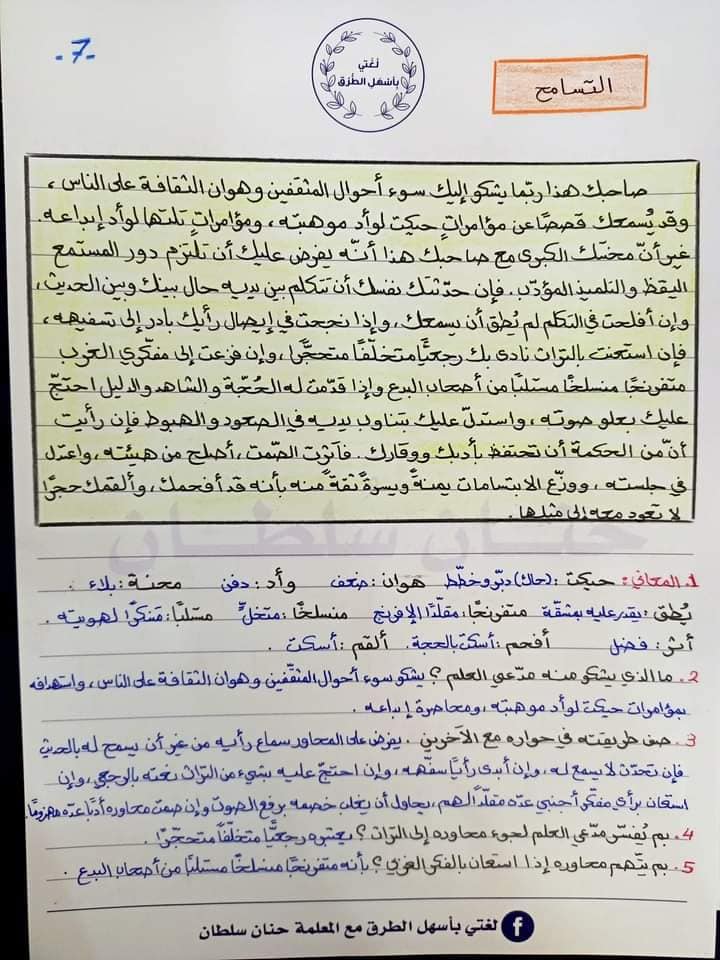 -7-
لغتي
بأسهل الطرق
التسامح
صاحبك هذا ربّما يشكو إليك سوء أحوال المثقفين وهوان الثقافة على الناس ،
وقد يُسمعك قصصًا عن مؤامراتٍ حيكت لوأد موهبته ، ومؤامراتٍ تلتها لوأد إبداعه .
غير أنّ محنتك الكبرى مع صاحبك هذا أنّه يفرض عليك أن تلتزم دور المستمع
اليقظ والتلميذ المؤدّب . فإن حدّثتك نفسك أن تتكلم بين يديه حال بينك وبين الحديث ،
وإن أفلحت في التكلم لم يُطق أن يسمعك ، وإذا نجحت في إيصال رأيك بادر إلى تسفيهه ،
فإن استعنت بالتراث نادى بك رجعيًّا متخلّفًا متحجّرًا ، وإن فزعت إلى مفكّري الغرب
متفرنجًا منسلخًا مستلبًا من أصحاب البدع وإذا قدّمت له الحُجّة والشاهد والدليل احتجّ
عليك بعلو صوته ، واستدلّ عليك بتناوب يديه في الصعود والهبوط فإن رأيت
أنّ من الحكمة أن تحتفظ بأدبك ووقارك . فآثرت الصّمت ، أصلح من هيئته ، واعتدل
في جلسته ، ووزّع الابتسامات يمنةً ويسرةً ثقةً منه بأنه قد أفحمك ، وألقمك حجرًا
لا تعود معه إلى مثلها .
حنان سلطان
1. المعاني : حيكت (حاك) دبّر وخطّط هوان : ضعف وأد : دفن محنة : بلاء .
يُطق : يقدر عليه بمشقّة متفرنجًا : مقلّدًا الإفرنج منسلخًا : متخلٍّ مستلبًا : متنكرًا لهويته .
آثر : فضل أفحم : أسكت بالحجة . ألقم : أسكت .
2. ما الذي يشكو منه مدّعي العلم ؟ يشكو سوء أحوال المثقّفين وهوان الثقافة على الناس ، واستهدافه
بمؤامرات حيكت لوأد موهبته ، ومحاصرة إبداعه .
3. صف طريقته في حواره مع الآخرين . يفرض على المحاور سماع رأيه من غير أن يسمح له بالحديث
فإن تحدّث لا يسمع له ، وإن أبدى رأيًا سفّهه ، وإن احتجّ عليه بشيء من التراث نعته بالرجعي ، وإن
استعان برأي مفكّر أجنبي عدّه مقلّدًا لهم ، يحاول أن يغلب خصمه برفع الصوت وإن صمت محاوره أدبًا عدّه مهزومًا .
4. بم يُفسّر مدّعي العلم لجوء محاوره إلى التراث ؟ يعتبره رجعيًّا متخلّفًا متحجّرًا .
5. بم يتّهم محاوره إذا استعان بالفكر الغربي ؟ بأنه متفرنجًا منسلخًا مستلبًا من أصحاب البدع .
لغتي بأسهل الطرق مع المعلمة حنان سلطان